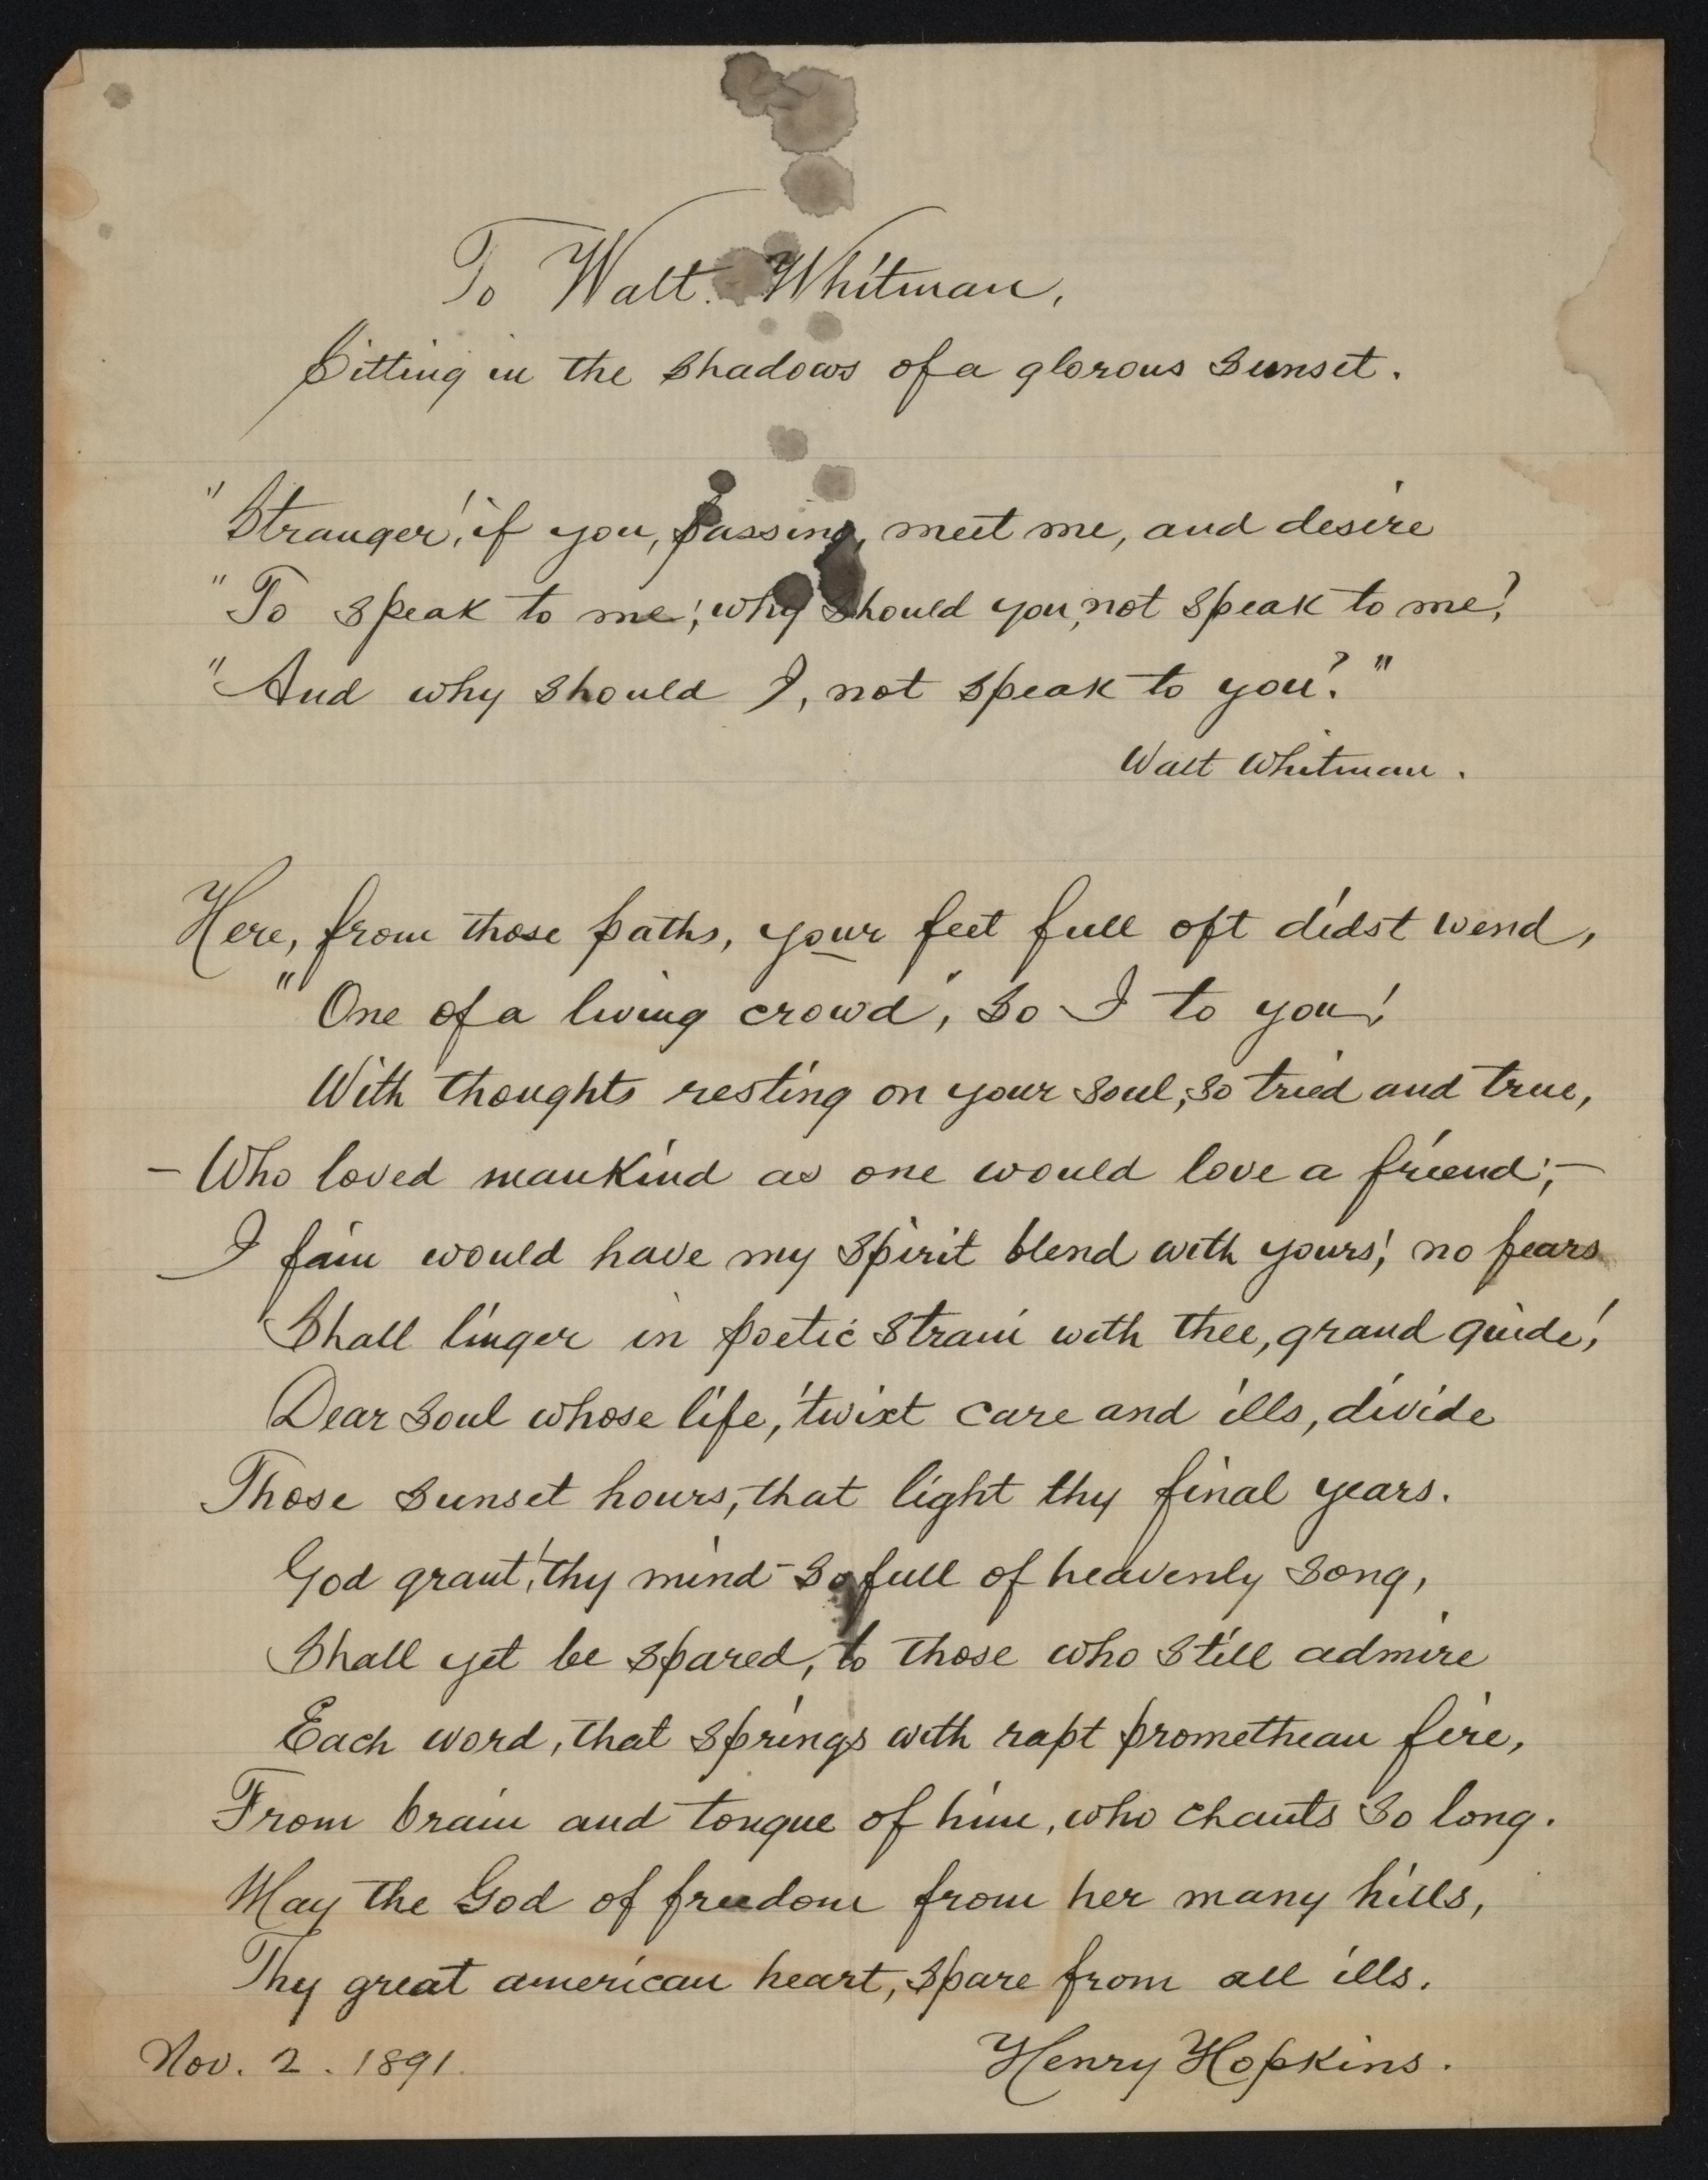 To Walt. Whitman,
Sitting in the shadows of a glorous sunset.
"Stranger! if you, passing, meet me, and desire
"To speak to me; why should you, not speak to me?
"And why should I, not speak to you?"
Walt Whitman.
Here, from those paths, your feet full oft didst wend,
"One of a living crowd", so I to you!
With thoughts resting on your soul, so tried and true,
— Who loved mankind as one would love a friend;—
I fain would have my spirit blend with yours; no fears
Shall linger in poetic strain with thee, grand guide!
Dear soul whose life, 'twixt care and ills, divide
Those sunset hours, that light thy final years.
God grant! thy mind - so full of heavenly song,
Shall yet be spared, to those who still admire
Each word, that springs with rapt promethean fire,
From brain and tongue of him, who chants so long.
May the God of freedom from her many hills,
Thy great american heart, spare from all ills.
Nov. 2. 1891. Henry Hopkins.